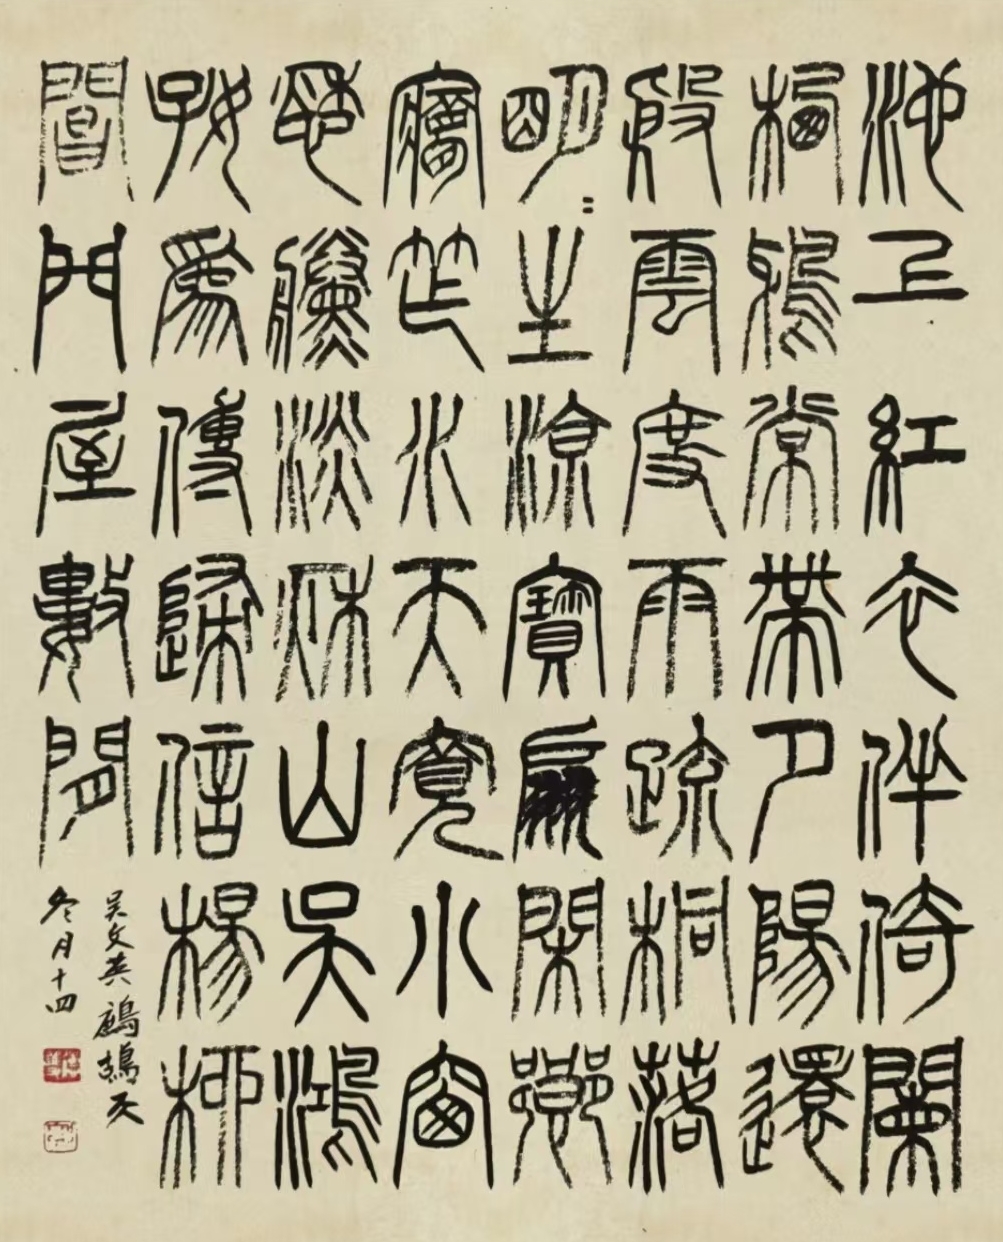 池上紅衣伴倚闌
棲鴉常帶夕陽還
殷雲度雨疏桐落
明〻生涼寶扇閑鄉
夢窄水天寬小窗
愁黛淡秋山吳鴻
好為傳歸信楊柳
閶門屋數間
吴文英鷓鴣天
冬月十四